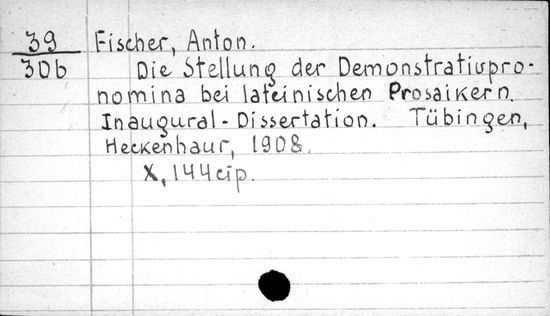 39 Fischer, Anton.
30b Die Stellung der Demonstrativpro-
nomina bei lateinischen Prosaikern.
Inaugural-Dissertation. Tübingen,
Heckenhaur, 1908.
X, 144 cip.